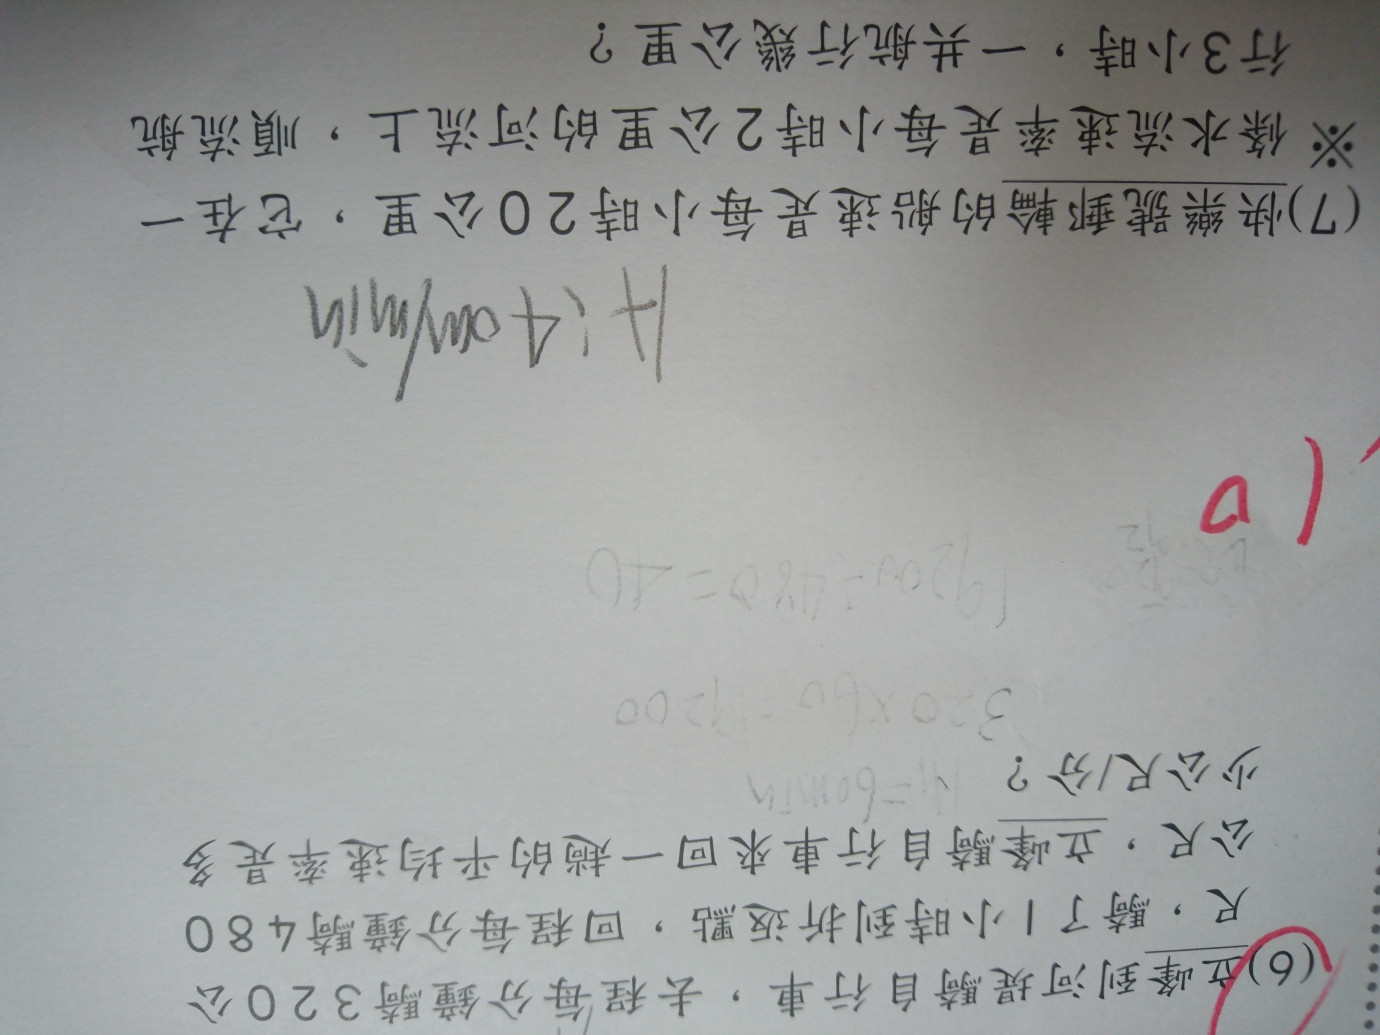 (6)立峰到河堤騎自行車，去程每分鐘騎320公
尺，騎了1小時到折返點，回程每分鐘騎480
公尺，立峰騎自行車來回一趟的平均速率是多
少公尺/分？
1H=60min
320×60=19200
19200÷480=40
-10
A:4 om/min
(7)快樂號郵輪的船速是每小時20公里，它在一
※ 條水流速率是每小時2公里的河流上，順流航
行3小時，一共航行幾公里？